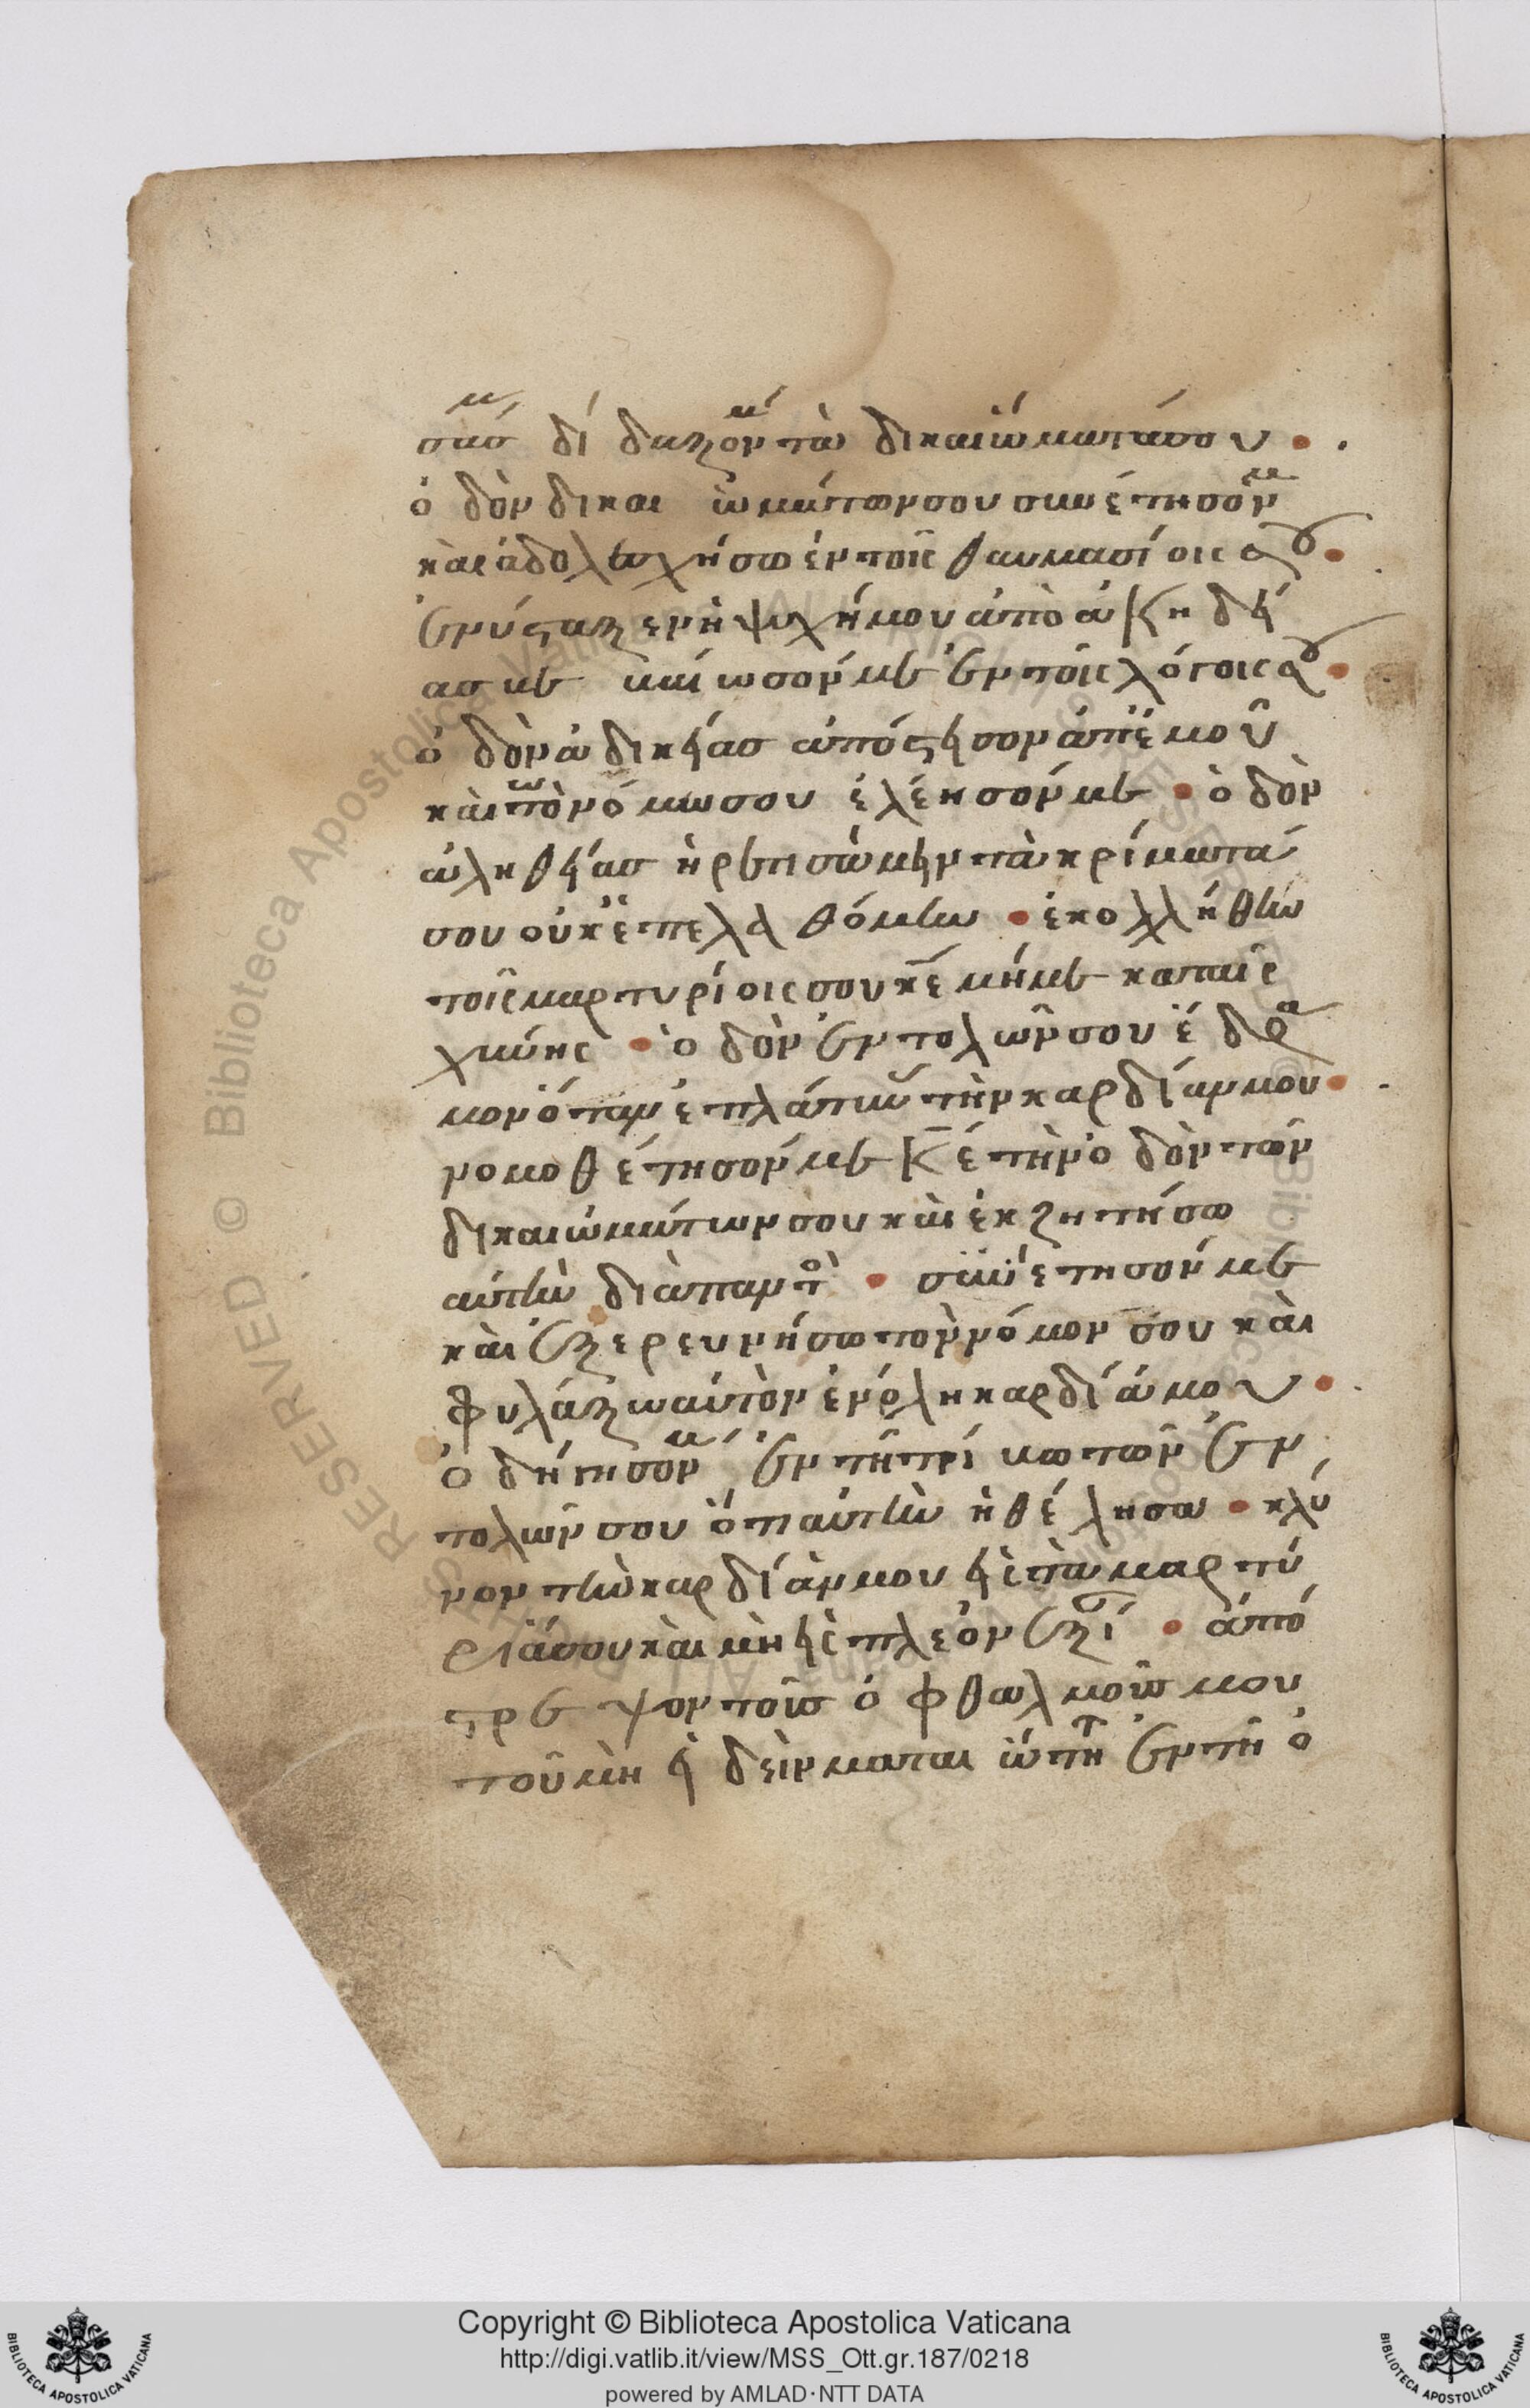 σάς μου δίδαξόν με τὰ δικαιώματά σου
ὁδὸν δικαιωμάτων σου συνέτησόν με
καὶ ἀδολεσχήσω ἐν τοῖς θαυμασίοις σου
ἐνύσταξεν ἡ ψυχή μου ἀπὸ ἀκηδεί
ας με ἐν τοῖς λόγοις σου
ὁδὸν ἀδικείας ἀπόστησον ἀπ' ἐμοῦ
καὶ τῶ νόμω σου ἐλέησόν με ὁδὸν
ἀληθείας ἡρετισάμην τὰ κρίματά
σου οὐκ ἐπελαθόμην ἐκολλήθην
τοῖς μαρτυρίοις σου κε μή με καταις
χύνης ὁδὸν ἐντολῶν σου ἔδρα
μον ὅταν ἐπλάτυν τὴν καρδίαν μου
νομοθέτησόν με κε τὴν ὁδὸν τῶν
δικαιωμάτων σου καὶ ἐκζητήσω
αὐτὴν διαπαντὸ συνέτησόν με
καὶ ἐξερευνήσω τὸν νόμον σου καὶ
φυλάξω αὐτὸν ἐν ὅλη καρδία μου
ὁδήγησόν με ἐν τῆ τρίβω τῶν ἐν
τολῶν σου ὅτι αὐτὴν ἠθέλησα κλῖ
νον τὴν καρδίαν μου εἰς τὰ μαρτύ
ριά σου καὶ μὴ εἰς πλεον ἐξί ἀπό
στρεψον τοὺς ὀφθαλμούς μου
τοῦ μὴ ἰδεῖν ματαιώτητ ἐν τῆ ὁ
Copyright © Biblioteca Apostolica Vaticana
http://digi.vatlib.it/view/MSS_Ott.gr.187/0218
powered by AMLAD·NTT DATA